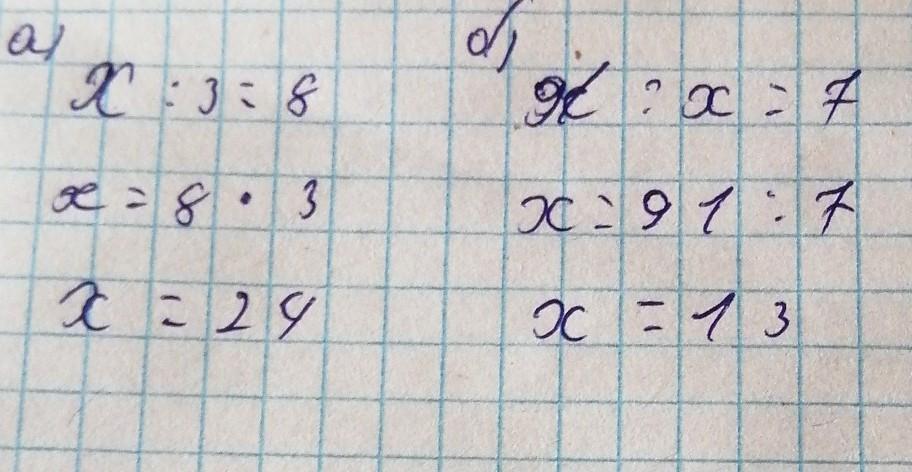 а) б)
x : 3 = 8
91 : x = 7
x = 8 · 3
x = 91 : 7
x = 24
x = 13